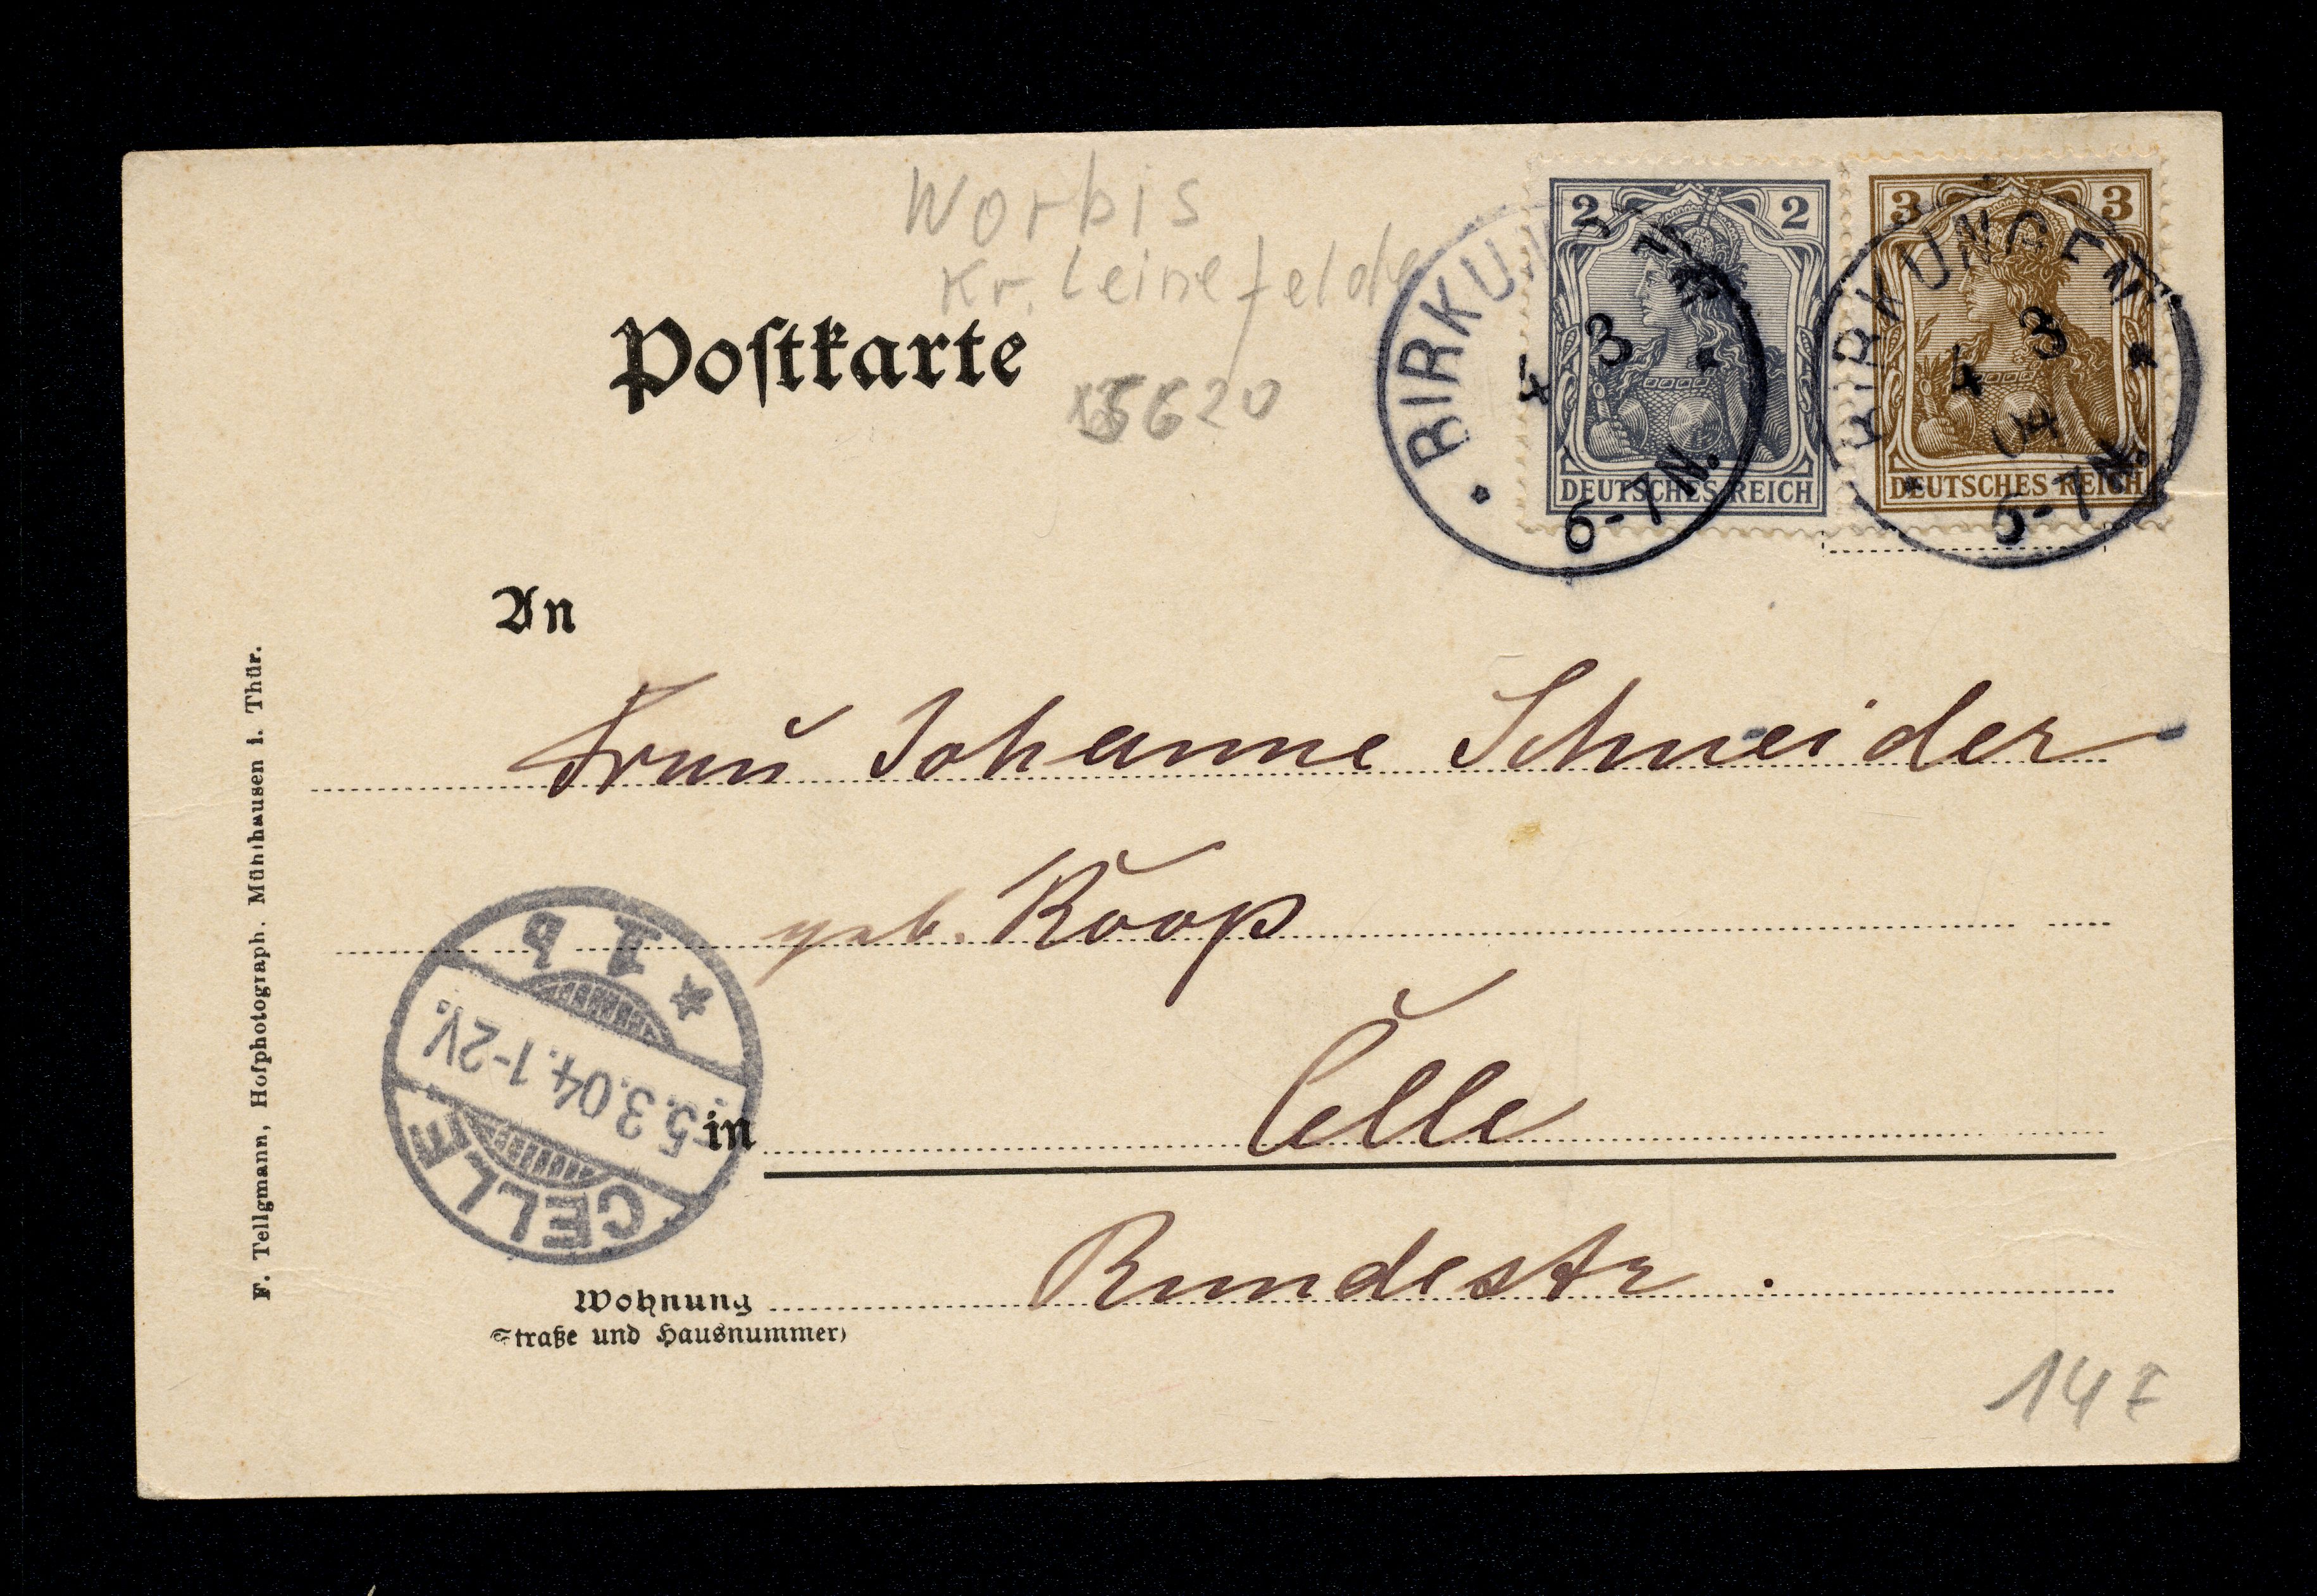 Worbis
Kr. Leinefelde
5620
Postkarte
2 2
DEUTSCHES REICH
3 3
DEUTSCHES REICH
BIRKUNGEN
4 3
6-7N.
BIRKUNGEN
4 3
04
6-7N.
An
Frau Johanne Schneider
geb. Koop
in Celle
Wohnung Rundestr.
(Straße und Hausnummer)
CELLE
5.3.04.1-2V.
* 1 b
F. Tellgmann, Hofphotograph. Mühlhausen i. Thür.